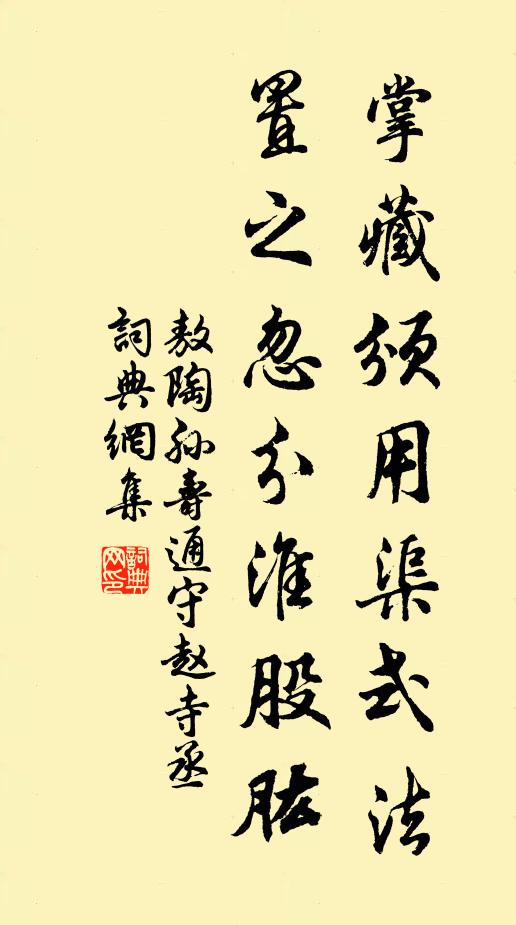 掌藏颁用渠式法
置之忽分淮股肱
敖陶孙寿通守赵寺丞
詞典網集
詞典网印